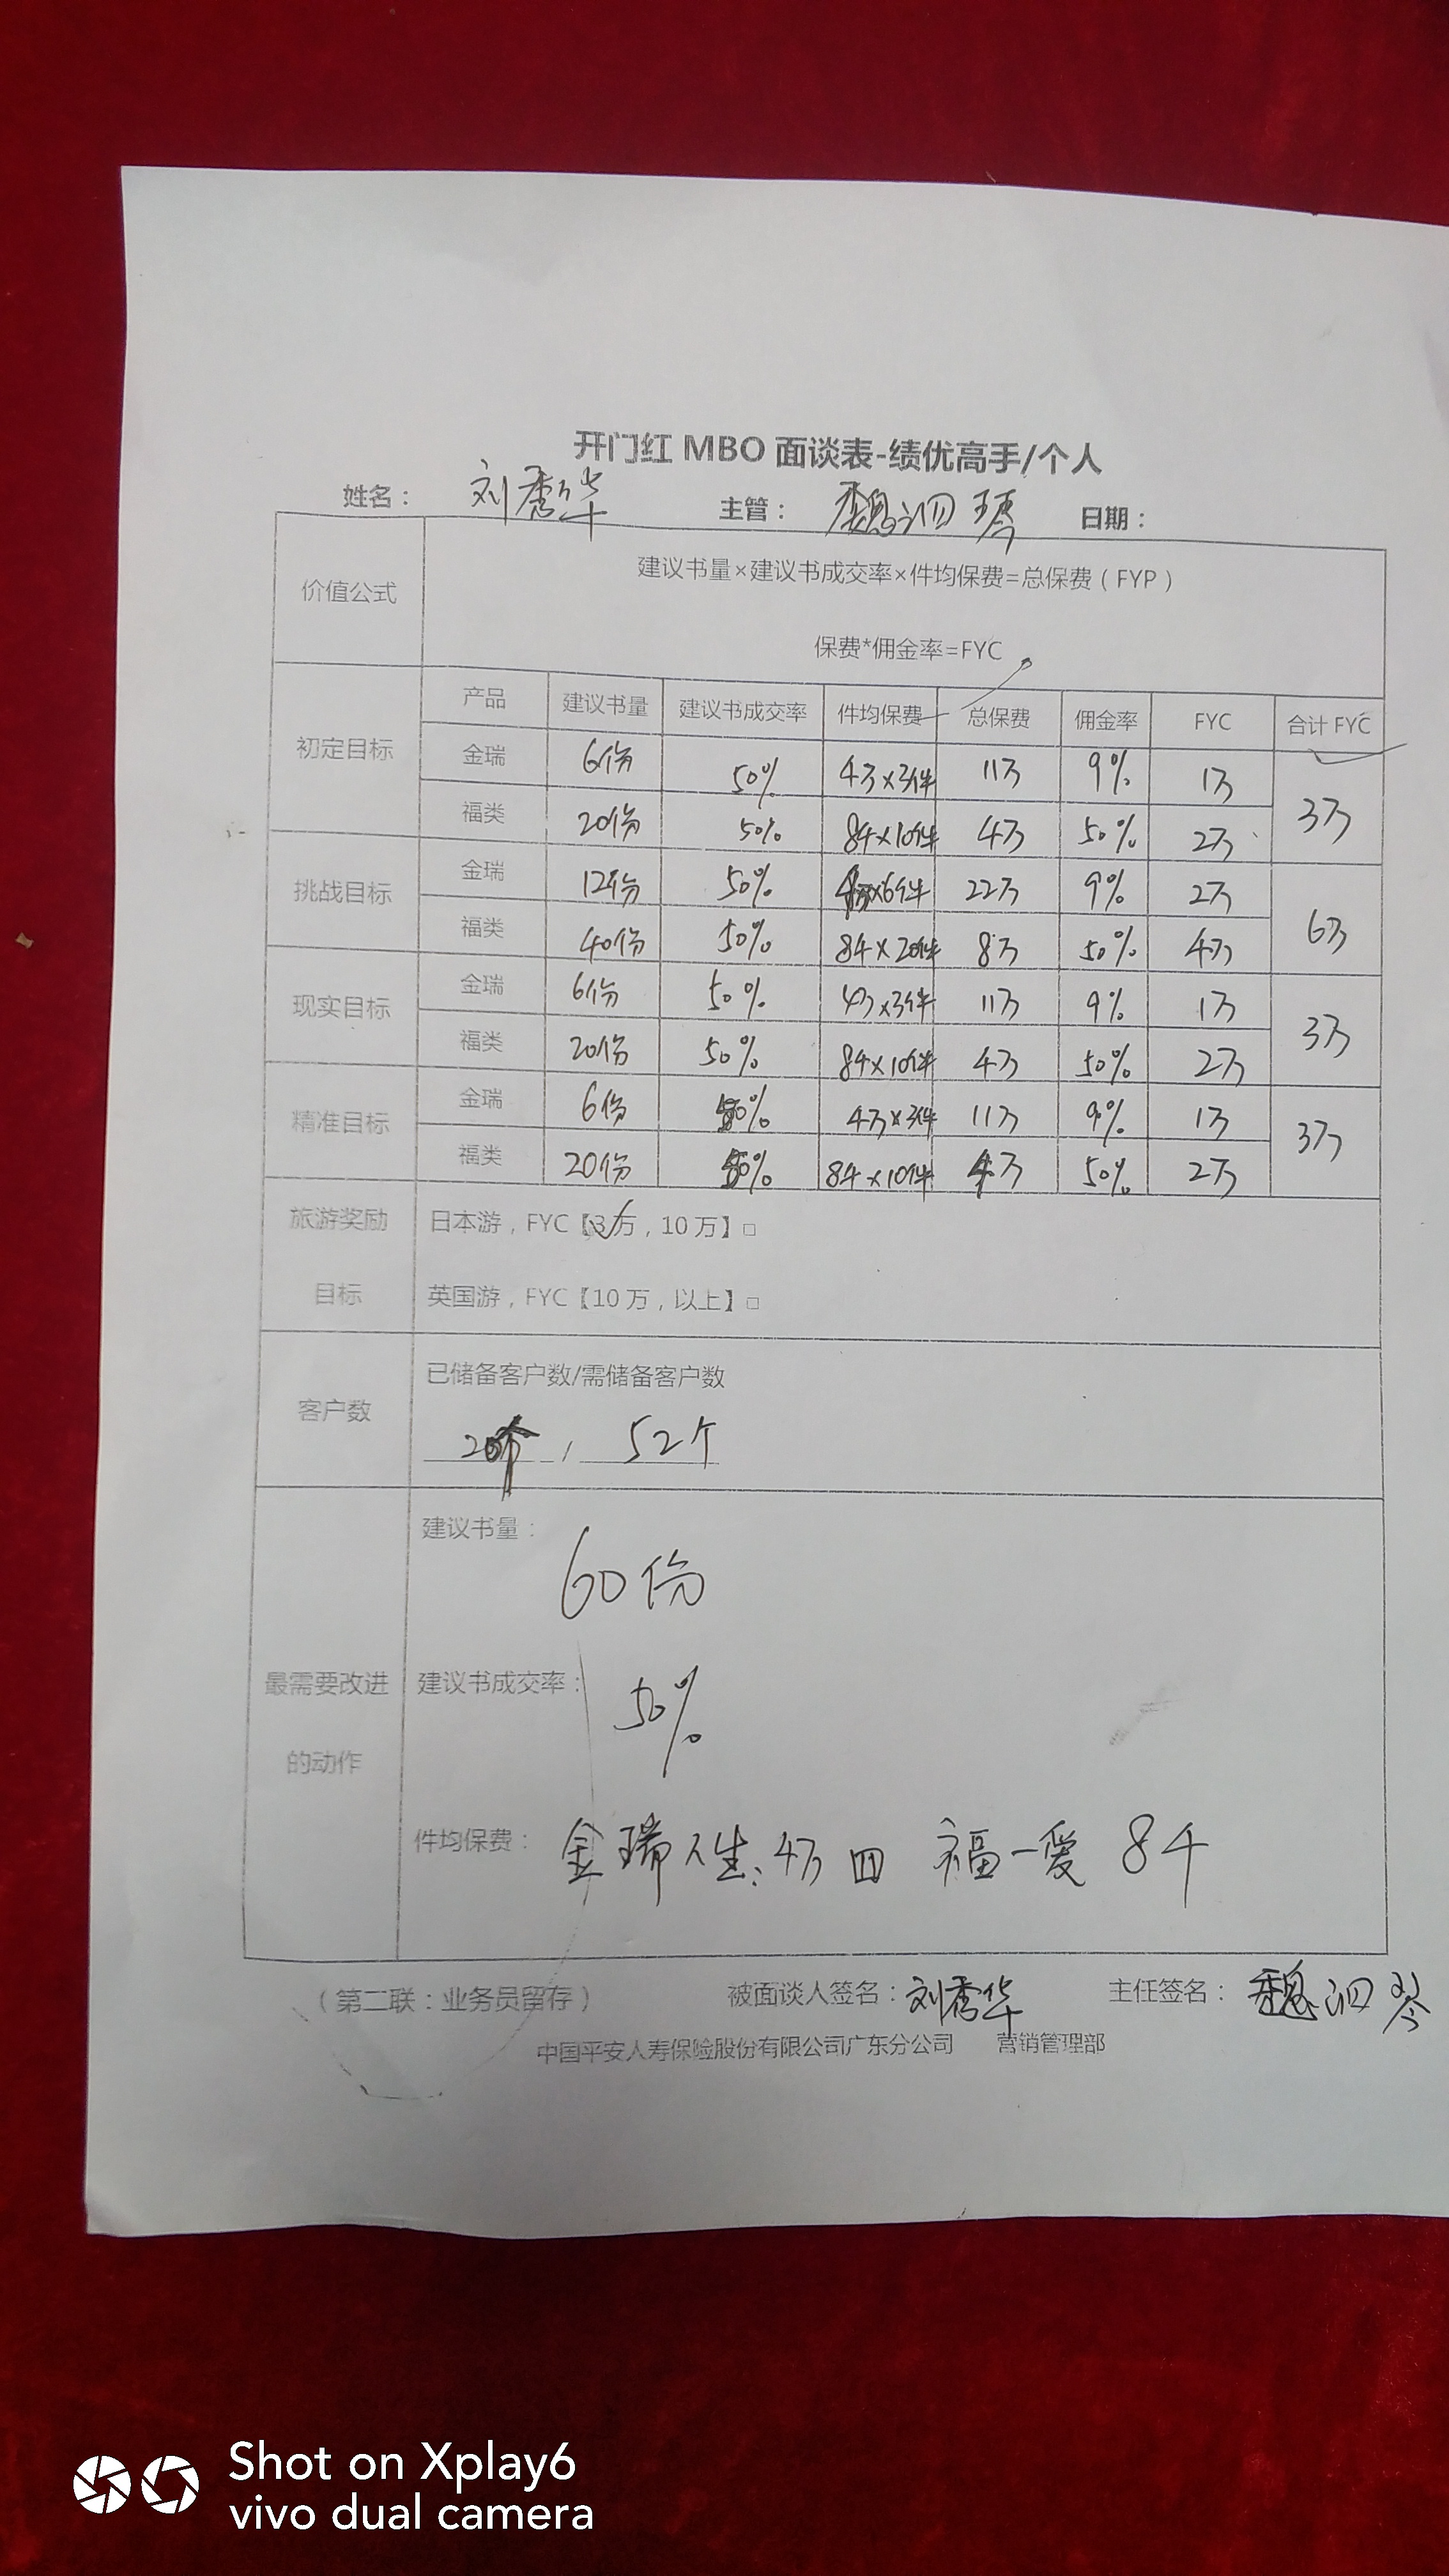 开门红 MBO 面谈表-绩优高手/个人
姓名： 刘秀华 主管： 魏泗琴 日期：
价值公式 建议书量×建议书成交率×件均保费=总保费（FYP）
保费*佣金率=FYC
产品 建议书量 建议书成交率 件均保费 总保费 佣金率 FYC 合计 FYC
初定目标 金瑞 6份 50% 4万×3件 11万 9% 1万 3万
福类 20份 50% 8千×10件 4万 50% 2万
挑战目标 金瑞 12份 50% ×6件 22万 9% 2万 6万
福类 40份 50% 8千×20件 8万 50% 4万
现实目标 金瑞 6份 50% 4万×3件 11万 9% 1万 3万
福类 20份 50% 8千×10件 4万 50% 2万
精准目标 金瑞 6份 50% 4万×3件 11万 9% 1万 3万
福类 20份 50% 8千×10件 4万 50% 2万
旅游奖励 日本游，FYC【3万，10万】□
目标 英国游，FYC【10万，以上】□
已储备客户数/需储备客户数
客户数
20个 / 52个
建议书量：
60份
最需要改进 建议书成交率：
50%
的动作
件均保费： 金瑞人生：4万 福一爱 8千
（第二联：业务员留存） 被面谈人签名：刘秀华 主任签名：魏泗琴
中国平安人寿保险股份有限公司广东分公司 营销管理部
Shot on Xplay6
vivo dual camera